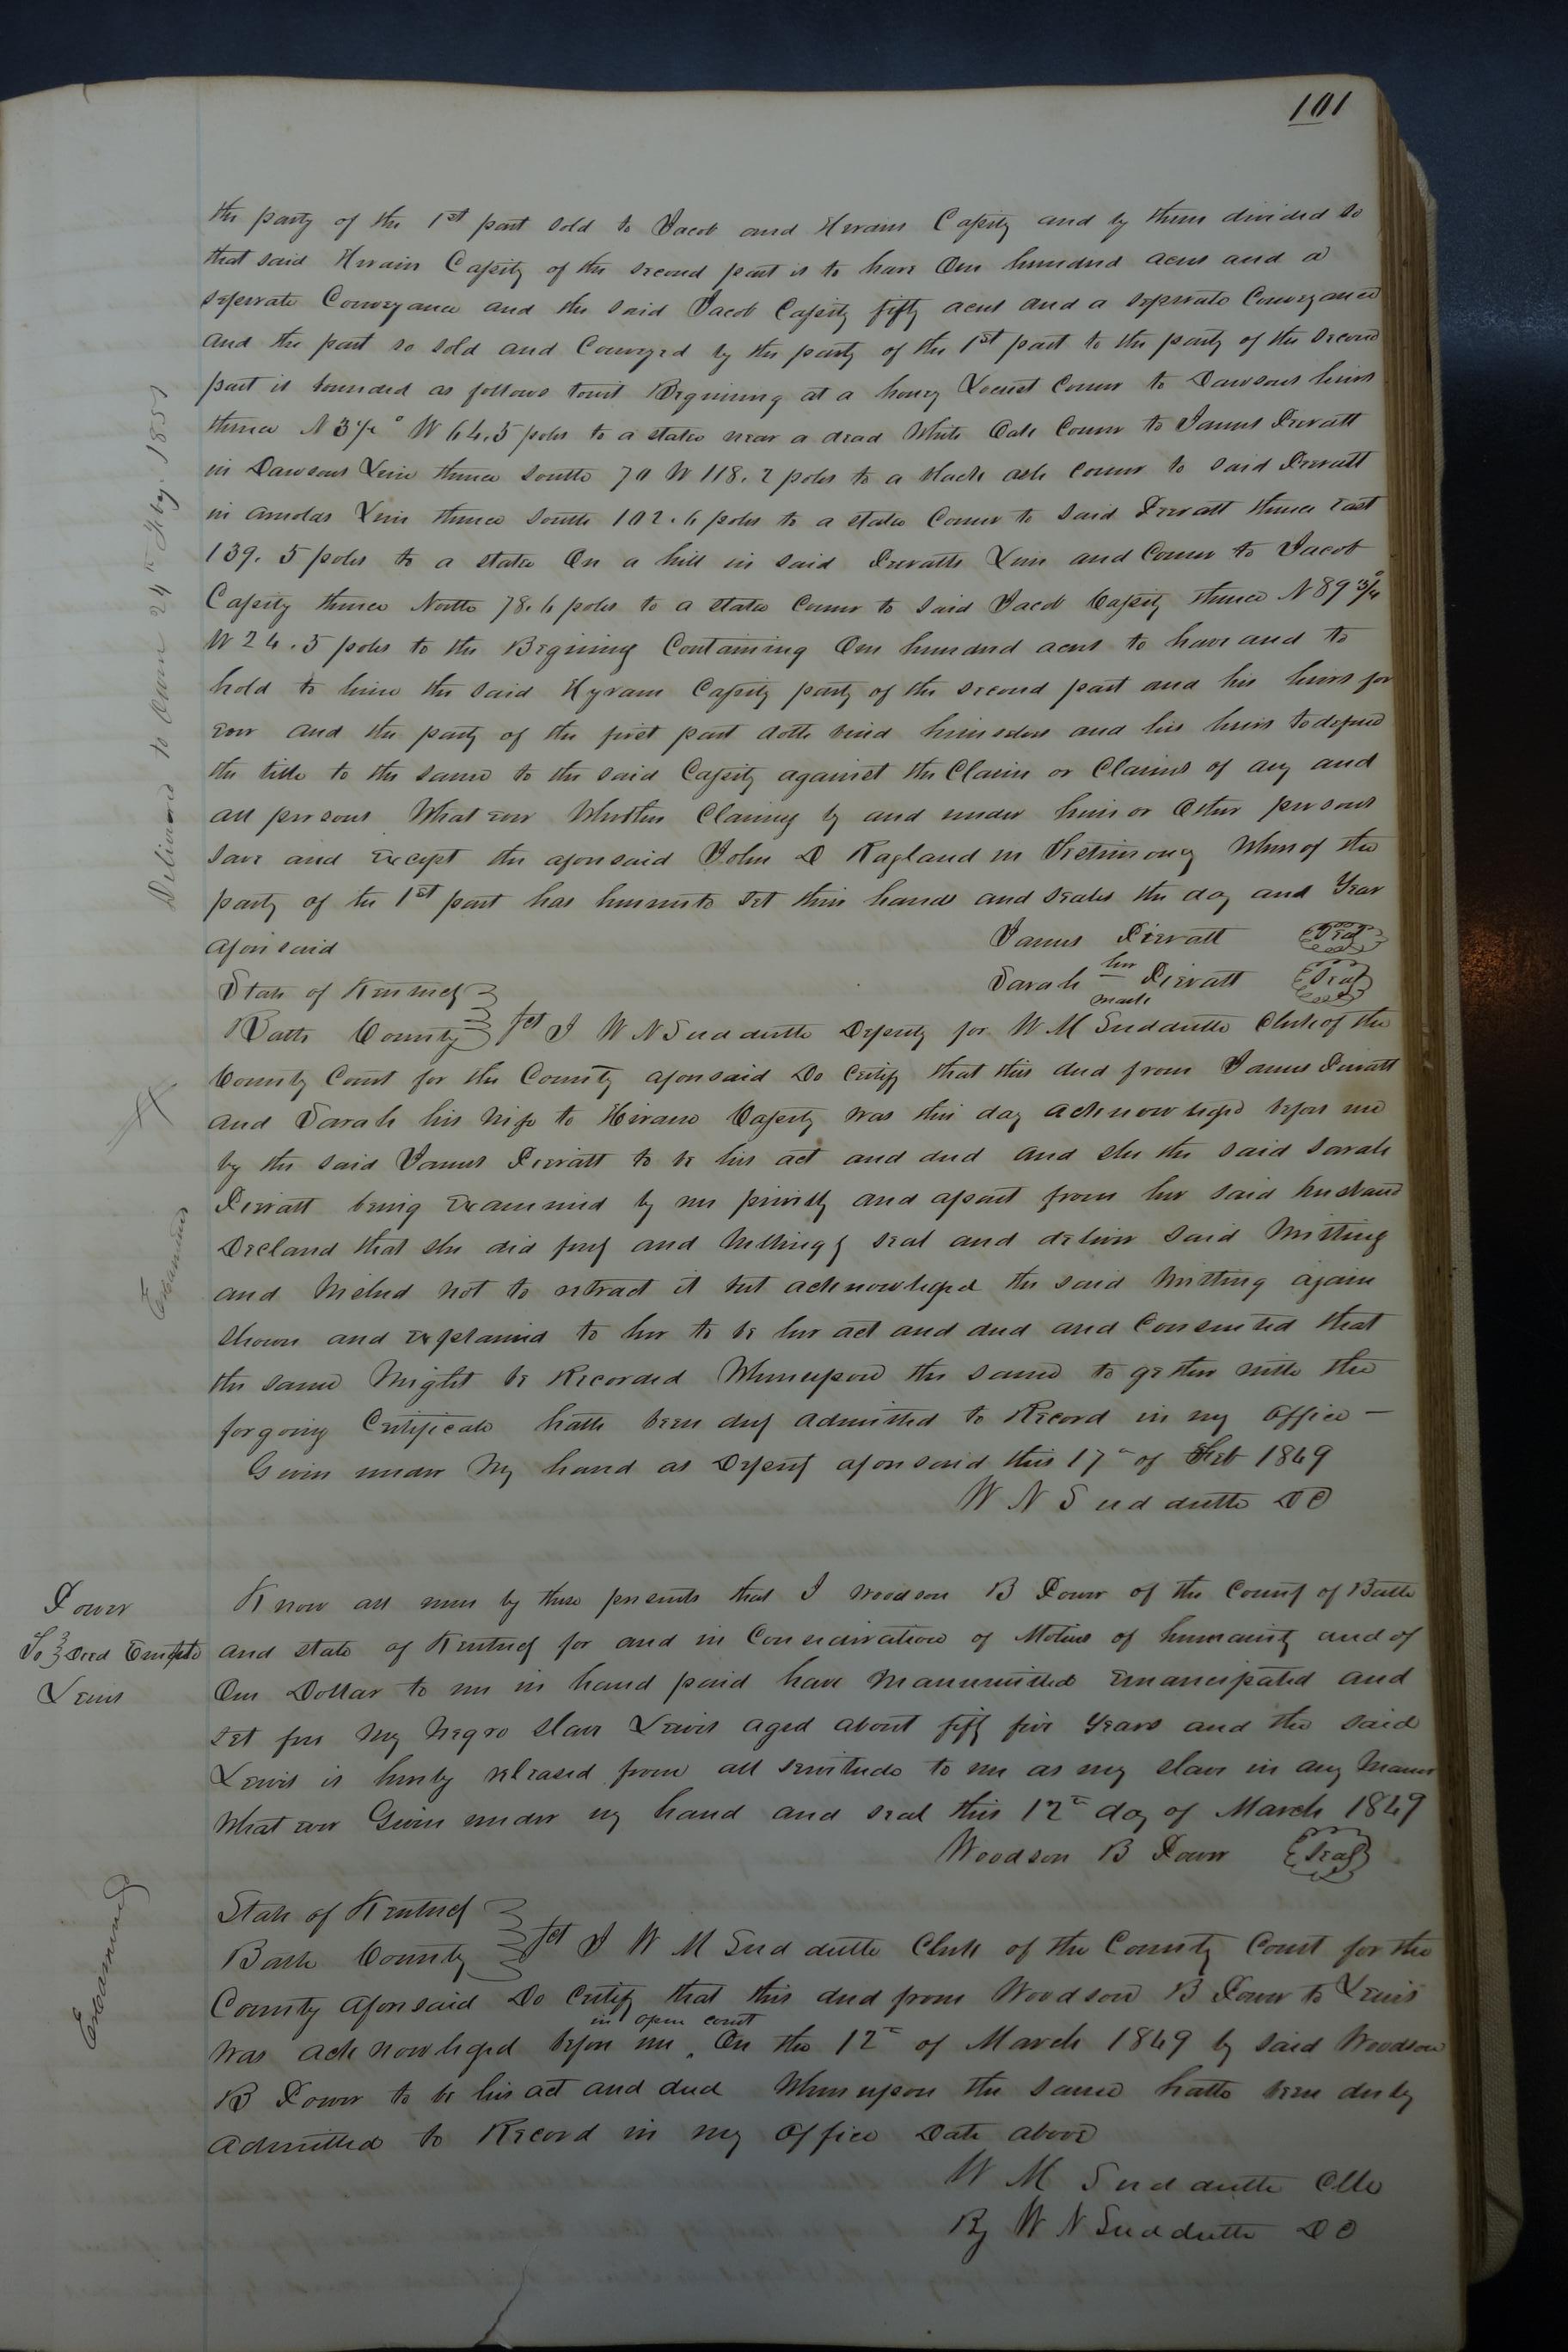 101
the party of the 1st part sold to Jacob and Hiram Cassity and by them divided so
that said Hiram Cassity of the second part is to have One hundred acres and a
seperate Conveyance and the said Jacob Cassity fifty acres and a seperate Conveyance
and the part so sold and Conveyed by the party of the 1st part to the party of the second
part is bounded as follows towit Begining at a honey Locust Corner to Dawsons heirs
thence N 3½° W 64.5 poles to a stake near a dead White Oak Corner to James Pieratt
in Dawsons Line thence South 70 W 118.2 poles to a black ash corner to said Pieratt
in Line thence South 102.6 poles to a stake Corner to said Pieratt thence East
139.5 poles to a stake On a hill in said Pieratts Line and Corner to Jacob
Cassity thence North 78.6 poles to a stake Corner to said Jacob Cassity Thence N 89¾°
W 24.5 poles to the Begining Containing One hundred acres to have and to
hold to him the said Hyram Cassity party of the second part and his heirs for
ever and the party of the first part doth bind and his heirs to defend
the title to the same to the said Cassity against the Claim or Claims of any and
all persons What ever Whether Claiming by and under him or Other persons
save and Except the aforesaid John D Ragland in Testimony Whereof the
party of the 1st part has hereunto set their hands and seales the day and Year
aforesaid
James Pieratt Seal
Sarah her mark Pieratt Seal
State of Kentucky
Bath County Sct I W N Sudduth Deputy for W M Sudduth Clerk of the
County Court for the County aforesaid Do Certify that this deed from James Pieratt
and Sarah his wife to Hiram Cassity was this day acknowleged before me
by the said James Pieratt to be his act and deed and she the said Sarah
Pieratt being Examined by me privily and apart from her said husband
Declared that she did freely and Willingly seal and deliver said Writting
and Wished not to retract it but acknowleged the said Writting again
shown and explained to her to be her act and deed and Consented that
the same Might be Recorded Whereupon the same to gether with the
forgoing Certificate hath been duly admitted to Record in my Office -
Given under My hand as Deputy aforesaid this 17th of Feb 1849
W N Sudduth D C
Delivered to Own 24th Feby. 1851
Examined
Power
To } Deed Emcpte
Lewis
Know all men by these presents that I Woodson B Power of the County of Bath
and state of Kentucky for and in Consideration of Motives of humanity and of
One Dollar to me in hand paid have Manumitted Emancipated and
set free My Negro Slave Lewis aged about fifty five Years and the said
Lewis is hereby released from all servitude to me as my slave in any Manner
What ever Given under my hand and seal this 12th day of March 1849
Woodson B Power Seal
State of Kentucky
Bath County Sct I W M Sudduth Clerk of the County Court for the
County aforesaid Do Certify that this deed from Woodson B Power to Lewis
in open court
was acknowleged before me ‸ On the 12th of March 1849 by said Woodson
B Power to be his act and deed Whereupon the same hath been duly
admitted to Record in my Office Date above
W M Sudduth Clk
By W N Sudduth D C
Examined